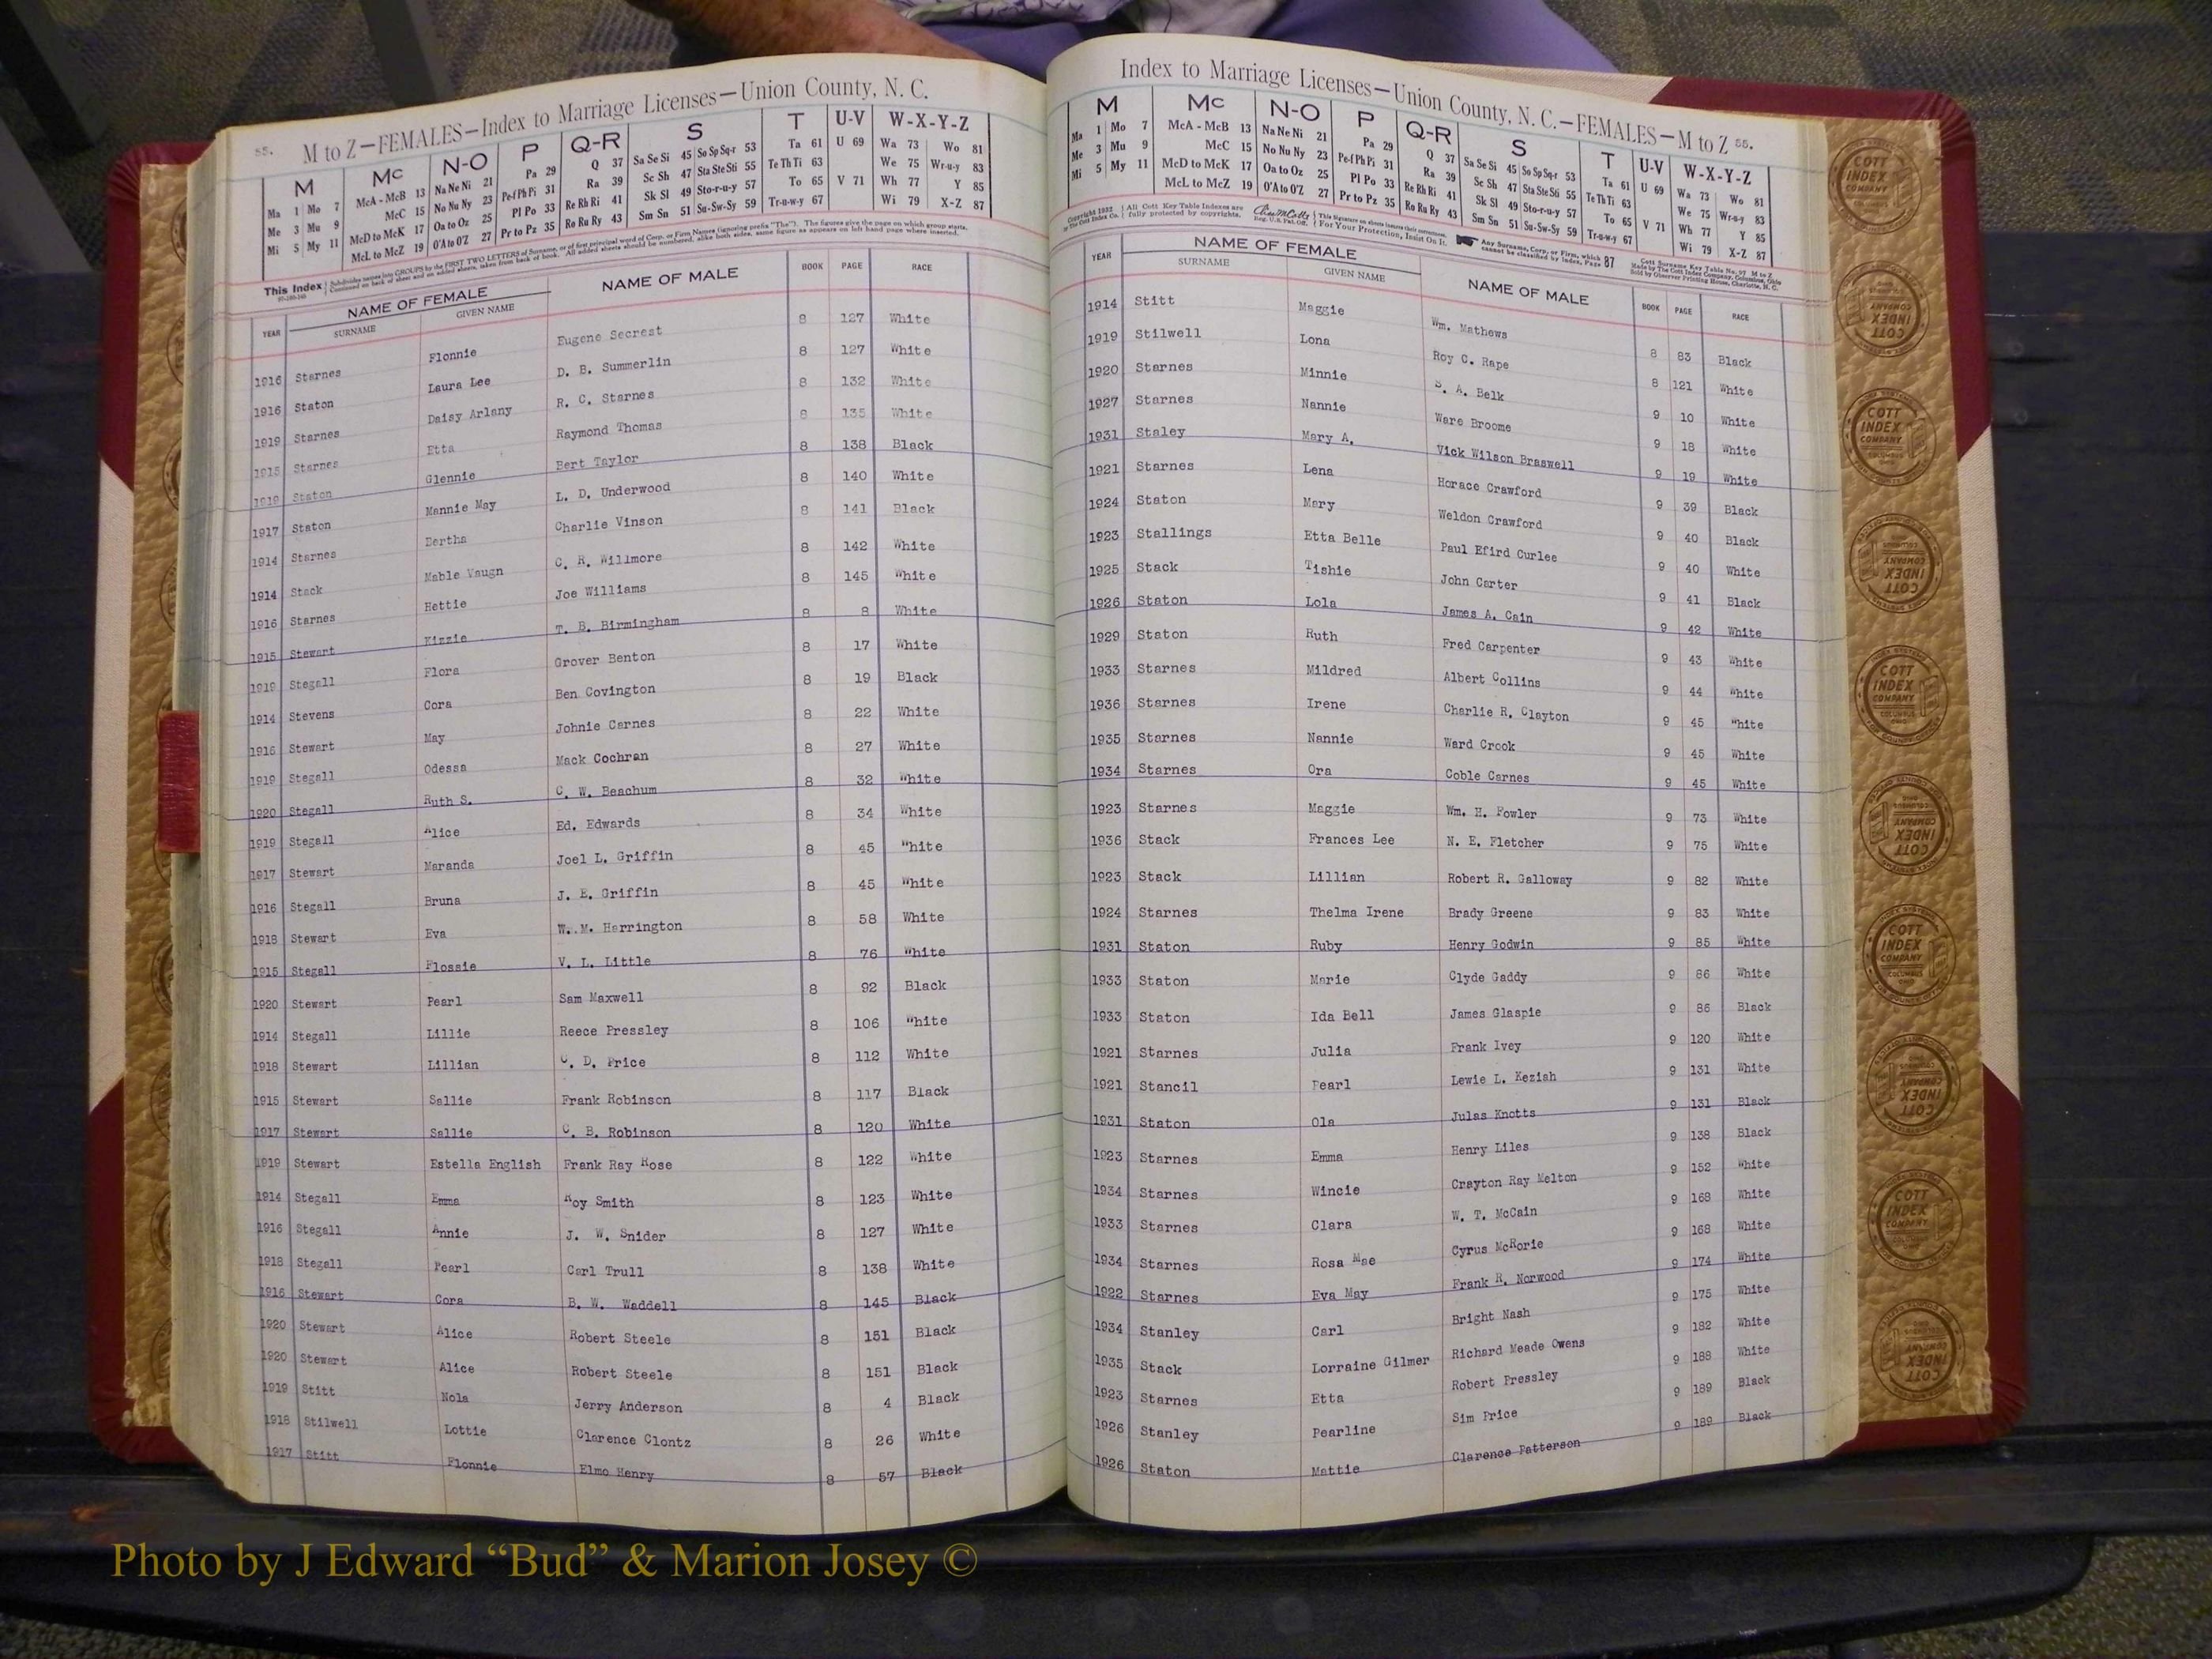 55. M to Z—FEMALES—Index to Marriage Licenses—Union County, N. C.
M Mc N-O P Q-R S T U-V W-X-Y-Z
Ma 1 Mo 7 McA - McB 13 Na Ne Ni 21 Pa 29 Q 37 Sa Se Si 45 So Sp Sq-r 53 Ta 61 U 69 Wa 73 Wo 81
Me 3 Mu 9 McC 15 No Nu Ny 23 Pe-f Ph Pi 31 Ra 39 Sc Sh 47 Sta Ste Sti 55 Te Th Ti 63 We 75 Wr-u-y 83
Mi 5 My 11 McD to McK 17 Oa to Oz 25 Pl Po 33 Re Rh Ri 41 Sk Sl 49 Sto-r-u-y 57 To 65 V 71 Wh 77 Y 85
McL to McZ 19 O'A to O'Z 27 Pr to Pz 35 Ro Ru Ry 43 Sm Sn 51 Su-Sw-Sy 59 Tr-u-w-y 67 Wi 79 X-Z 87
This Index Subdivides names into GROUPS by the FIRST TWO LETTERS of Surname, or of first principal word of Corp. or Firm Names (ignoring prefix "The"). The figures give the page on which group starts.
Continued on back of sheet and on added sheets, taken from back of book. All added sheets should be numbered, alike both sides, same figure as appears on left hand page where inserted.
YEAR NAME OF FEMALE NAME OF MALE BOOK PAGE RACE
SURNAME GIVEN NAME
1916 Starnes Flonnie Eugene Secrest 8 127 White
1916 Staton Laura Lee D. B. Summerlin 8 127 White
1919 Starnes Daisy Arlany R. C. Starnes 8 132 White
1915 Starnes Etta Raymond Thomas 8 135 White
1919 Staton Glennie Bert Taylor 8 138 Black
1917 Staton Mannie May L. D. Underwood 8 140 White
1914 Starnes Bertha Charlie Vinson 8 141 Black
1914 Stack Mable Vaugn C. R. Willmore 8 142 White
1916 Starnes Hettie Joe Williams 8 145 White
1915 Stewart Kizzie T. B. Birmingham 8 8 White
1919 Stegall Flora Grover Benton 8 17 White
1914 Stevens Cora Ben Covington 8 19 Black
1916 Stewart May Johnie Carnes 8 22 White
1919 Stegall Odessa Mack Cochran 8 27 White
1920 Stegall Ruth S. C. W. Beachum 8 32 White
1919 Stegall Alice Ed. Edwards 8 34 White
1917 Stewart Maranda Joel L. Griffin 8 45 White
1916 Stegall Bruna J. E. Griffin 8 45 White
1918 Stewart Eva W. M. Harrington 8 58 White
1915 Stegall Flossie V. L. Little 8 76 White
1920 Stewart Pearl Sam Maxwell 8 92 Black
1914 Stegall Lillie Reece Pressley 8 106 White
1918 Stewart Lillian C. D. Price 8 112 White
1915 Stewart Sallie Frank Robinson 8 117 Black
1917 Stewart Sallie C. B. Robinson 8 120 White
1919 Stewart Estella English Frank Ray Rose 8 122 White
1914 Stegall Emma Roy Smith 8 123 White
1916 Stegall Annie J. W. Snider 8 127 White
1918 Stegall Pearl Carl Trull 8 138 White
1916 Stewart Cora B. W. Waddell 8 145 Black
1920 Stewart Alice Robert Steele 8 151 Black
1920 Stewart Alice Robert Steele 8 151 Black
1919 Stitt Nola Jerry Anderson 8 4 Black
1918 Stilwell Lottie Clarence Clontz 8 26 White
1917 Stitt Flonnie Elmo Henry 8 57 Black
Index to Marriage Licenses—Union County, N. C.—FEMALES—M to Z 55.
M Mc N-O P Q-R S T U-V W-X-Y-Z
Ma 1 Mo 7 McA - McB 13 Na Ne Ni 21 Pa 29 Q 37 Sa Se Si 45 So Sp Sq-r 53 Ta 61 U 69 Wa 73 Wo 81
Me 3 Mu 9 McC 15 No Nu Ny 23 Pe-f Ph Pi 31 Ra 39 Sc Sh 47 Sta Ste Sti 55 Te Th Ti 63 We 75 Wr-u-y 83
Mi 5 My 11 McD to McK 17 Oa to Oz 25 Pl Po 33 Re Rh Ri 41 Sk Sl 49 Sto-r-u-y 57 To 65 V 71 Wh 77 Y 85
McL to McZ 19 O'A to O'Z 27 Pr to Pz 35 Ro Ru Ry 43 Sm Sn 51 Su-Sw-Sy 59 Tr-u-w-y 67 Wi 79 X-Z 87
Copyright 1932 All Cott Key Table Indexes are This signature on sheets insures their correctness. Any Surname, Corp. or Firm, which Cott Surname Key Table No. 97 M to Z
by The Cott Index Co. fully protected by copyrights. Reg. U.S. Pat. Off. For Your Protection, Insist On It. cannot be classified by Index, Page 87 Made by The Cott Index Company, Columbus, Ohio
Sold by Observer Printing House, Charlotte, N. C.
YEAR NAME OF FEMALE NAME OF MALE BOOK PAGE RACE
SURNAME GIVEN NAME
1914 Stitt Maggie Wm. Mathews 8 83 Black
1919 Stilwell Lona Roy C. Rape 8 121 White
1920 Starnes Minnie S. A. Belk 9 10 White
1927 Starnes Nannie Ware Broome 9 18 White
1931 Staley Mary A. Vick Wilson Braswell 9 19 White
1921 Starnes Lena Horace Crawford 9 39 Black
1924 Staton Mary Weldon Crawford 9 40 Black
1923 Stallings Etta Belle Paul Efird Curlee 9 40 White
1925 Stack Tishie John Carter 9 41 Black
1926 Staton Lola James A. Cain 9 42 White
1929 Staton Ruth Fred Carpenter 9 43 White
1933 Starnes Mildred Albert Collins 9 44 White
1936 Starnes Irene Charlie R. Clayton 9 45 White
1935 Starnes Nannie Ward Crook 9 45 White
1934 Starnes Ora Coble Carnes 9 45 White
1923 Starnes Maggie Wm. H. Fowler 9 73 White
1936 Stack Frances Lee N. E. Fletcher 9 75 White
1923 Stack Lillian Robert R. Galloway 9 82 White
1924 Starnes Thelma Irene Brady Greene 9 83 White
1931 Staton Ruby Henry Godwin 9 85 White
1933 Staton Marie Clyde Gaddy 9 86 White
1933 Staton Ida Bell James Glaspie 9 86 Black
1921 Starnes Julia Frank Ivey 9 120 White
1921 Stancil Pearl Lewie L. Keziah 9 131 White
1931 Staton Ola Julas Knotts 9 131 Black
1923 Starnes Emma Henry Liles 9 138 Black
1934 Starnes Wincie Crayton Ray Melton 9 152 White
1933 Starnes Clara W. T. McCain 9 168 White
1934 Starnes Rosa Mae Cyrus McRorie 9 168 White
1922 Starnes Eva May Frank R. Norwood 9 174 White
1934 Stanley Carl Bright Nash 9 175 White
1935 Stack Lorraine Gilmer Richard Meade Owens 9 182 White
1923 Starnes Etta Robert Pressley 9 188 White
1926 Stanley Pearline Sim Price 9 189 Black
1926 Staton Mattie Clarence Patterson 9 189 Black
COTT
INDEX
COMPANY
Photo by J Edward “Bud” & Marion Josey ©